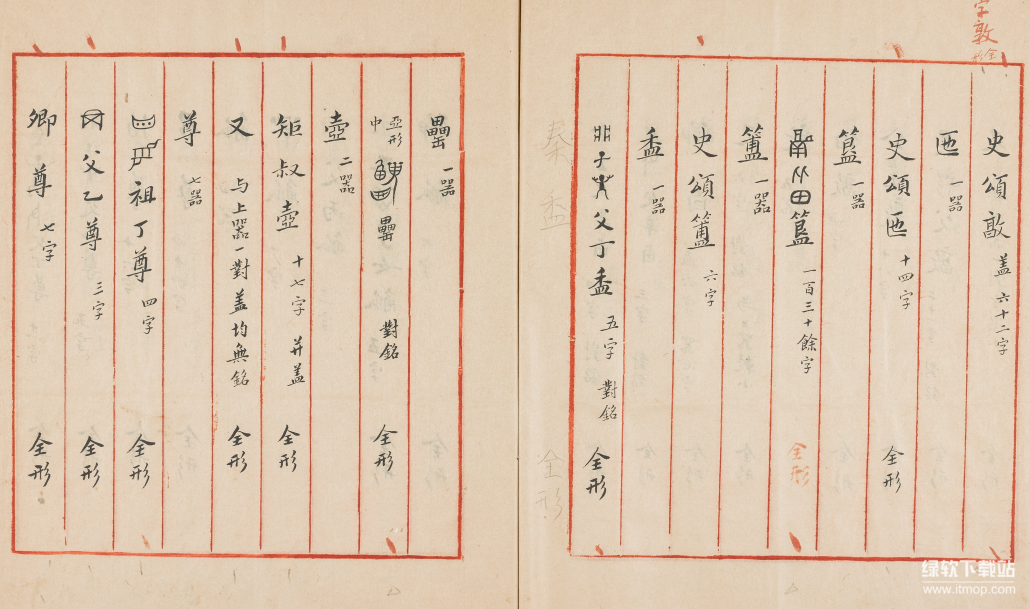 字敦
全形
史頌敦 蓋 六十二字
匜 一器
史頌匜 十四字 全形
簋 一器
鬲从田簋 一百三十餘字 全形
簠 一器
史頌簠 六字
盉 一器
子父丁盉 五字 對銘 全形
秦盉 全形
罍 一器
亞形中罍 對銘 全形
壺 二器
矩叔壺 十七字 并蓋 全形
又 与上器一對蓋均無銘 全形
尊 七器
祖丁尊 四字 全形
父乙尊 三字 全形
卿尊 七字 全形
绿软下载站
www.itmop.com